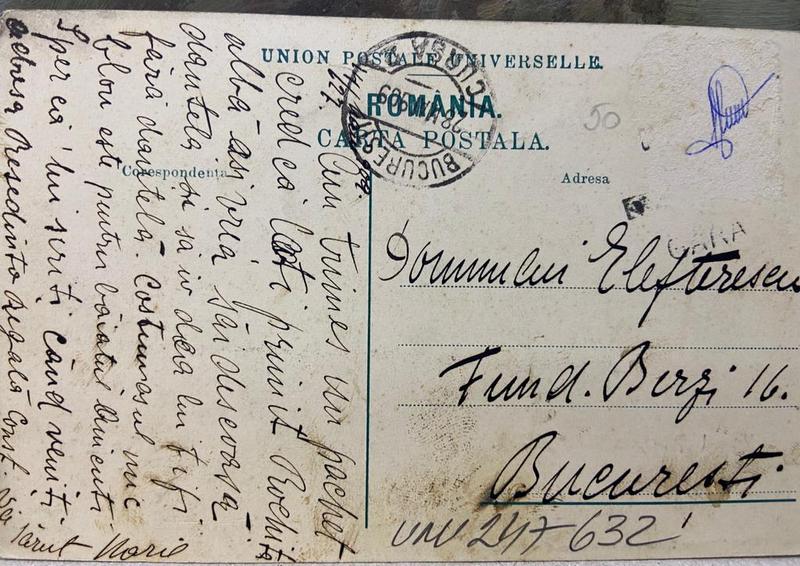 UNION POSTALE UNIVERSELLE.
ROMÂNIA.
CARTA POSTALA.
Corespondenta
Adresa
BUCURESTI
CURSA
GARA
50
Domnului Elefterescu
Fund. Berzi 16.
Bucuresti
UNU 247632
Am trimes un pachet
cred că Cati primit Rochita
albă asi vrea săi descoasă
dantela si să io dea lui Fifi
fără dantelă. Costumasul mic
bleu este pentru băiatul
Sper că'mi scriti când veniti
adresa Resedinta Regală Const
Vă sărut Marie